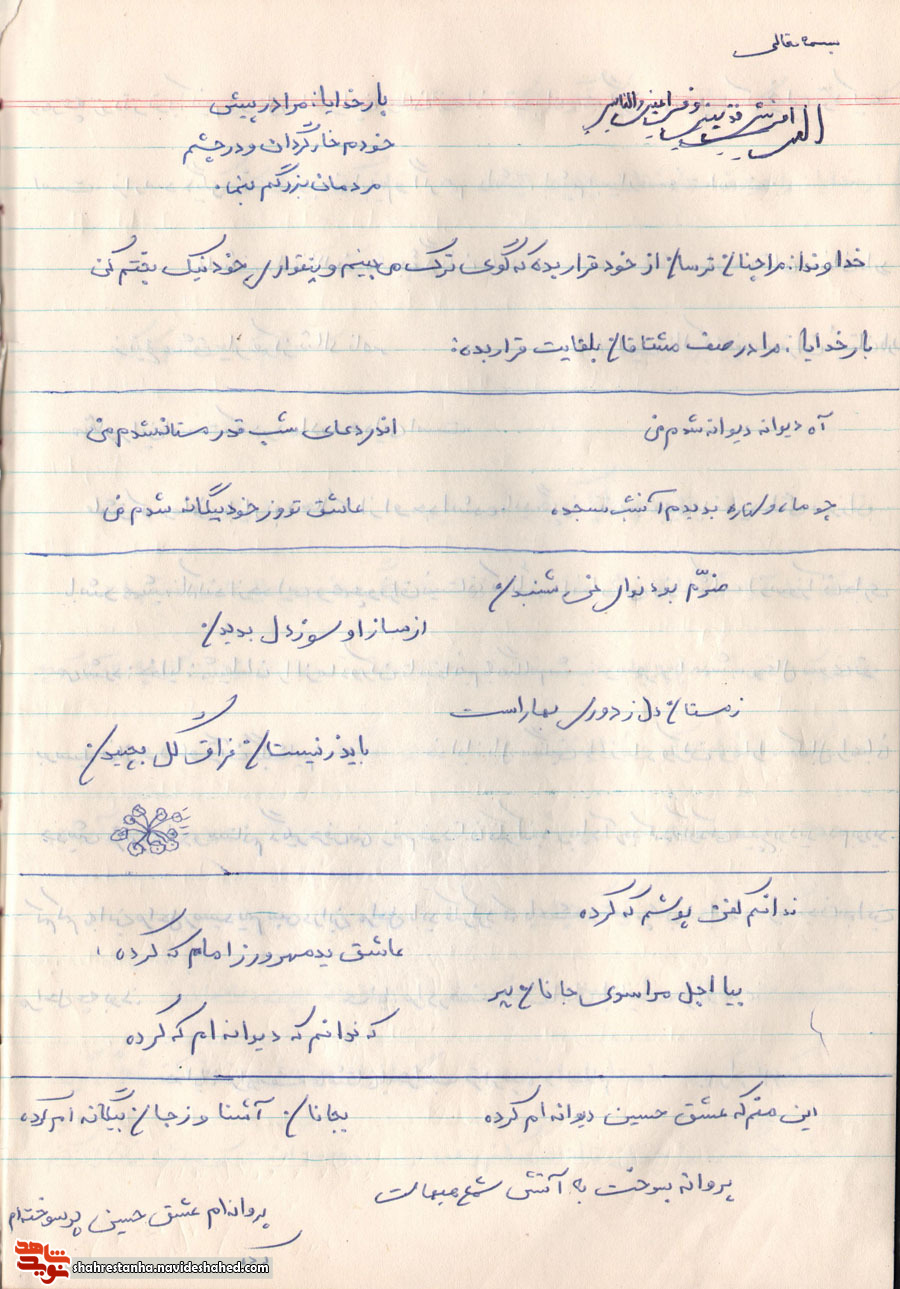 بسمه تعالی
بار خدایا: مرا در پیش
خودم خار گردان و در چشم
مردمان بزرگم بنما.
خداوندا: مرا چنان ترسان از خود قرار بده که گوی ترک می بینم و بتقوای خود نیک بختم کن
بار خدایا. مرا در صف مشتاقان بلقایت قرار بده:
آه دیوانه دیوانه شدم من
اندر دعای شب قدر مستانه شدم من
چو ماه و ستاره بدیدم آنشب بسجده
عاشق تو وز خود بیگانه شدم من
خرّم بود نوای نی شنیدن
از ساز او سوز دل بدیدن
زمستان دل ز دوری بهار است
باید ز نیستان فراق گل بچیدن
ندانم کفن پوشم که کرده
عاشق بدمهر ورزامام که کرده
بیا اجل مرا سوی جانان ببر
که ندانم که دیوانه ام که کرده
این منم که عشق حسین دیوانه ام کرده
بجانان آشنا و ز جان بیگانه ام کرده
پروانه بسوخت به آتش شمع
پروانه ام عشق حسین پر سوخته ام
کرده
نوید شاهد
shahrestanha.navideshahed.com